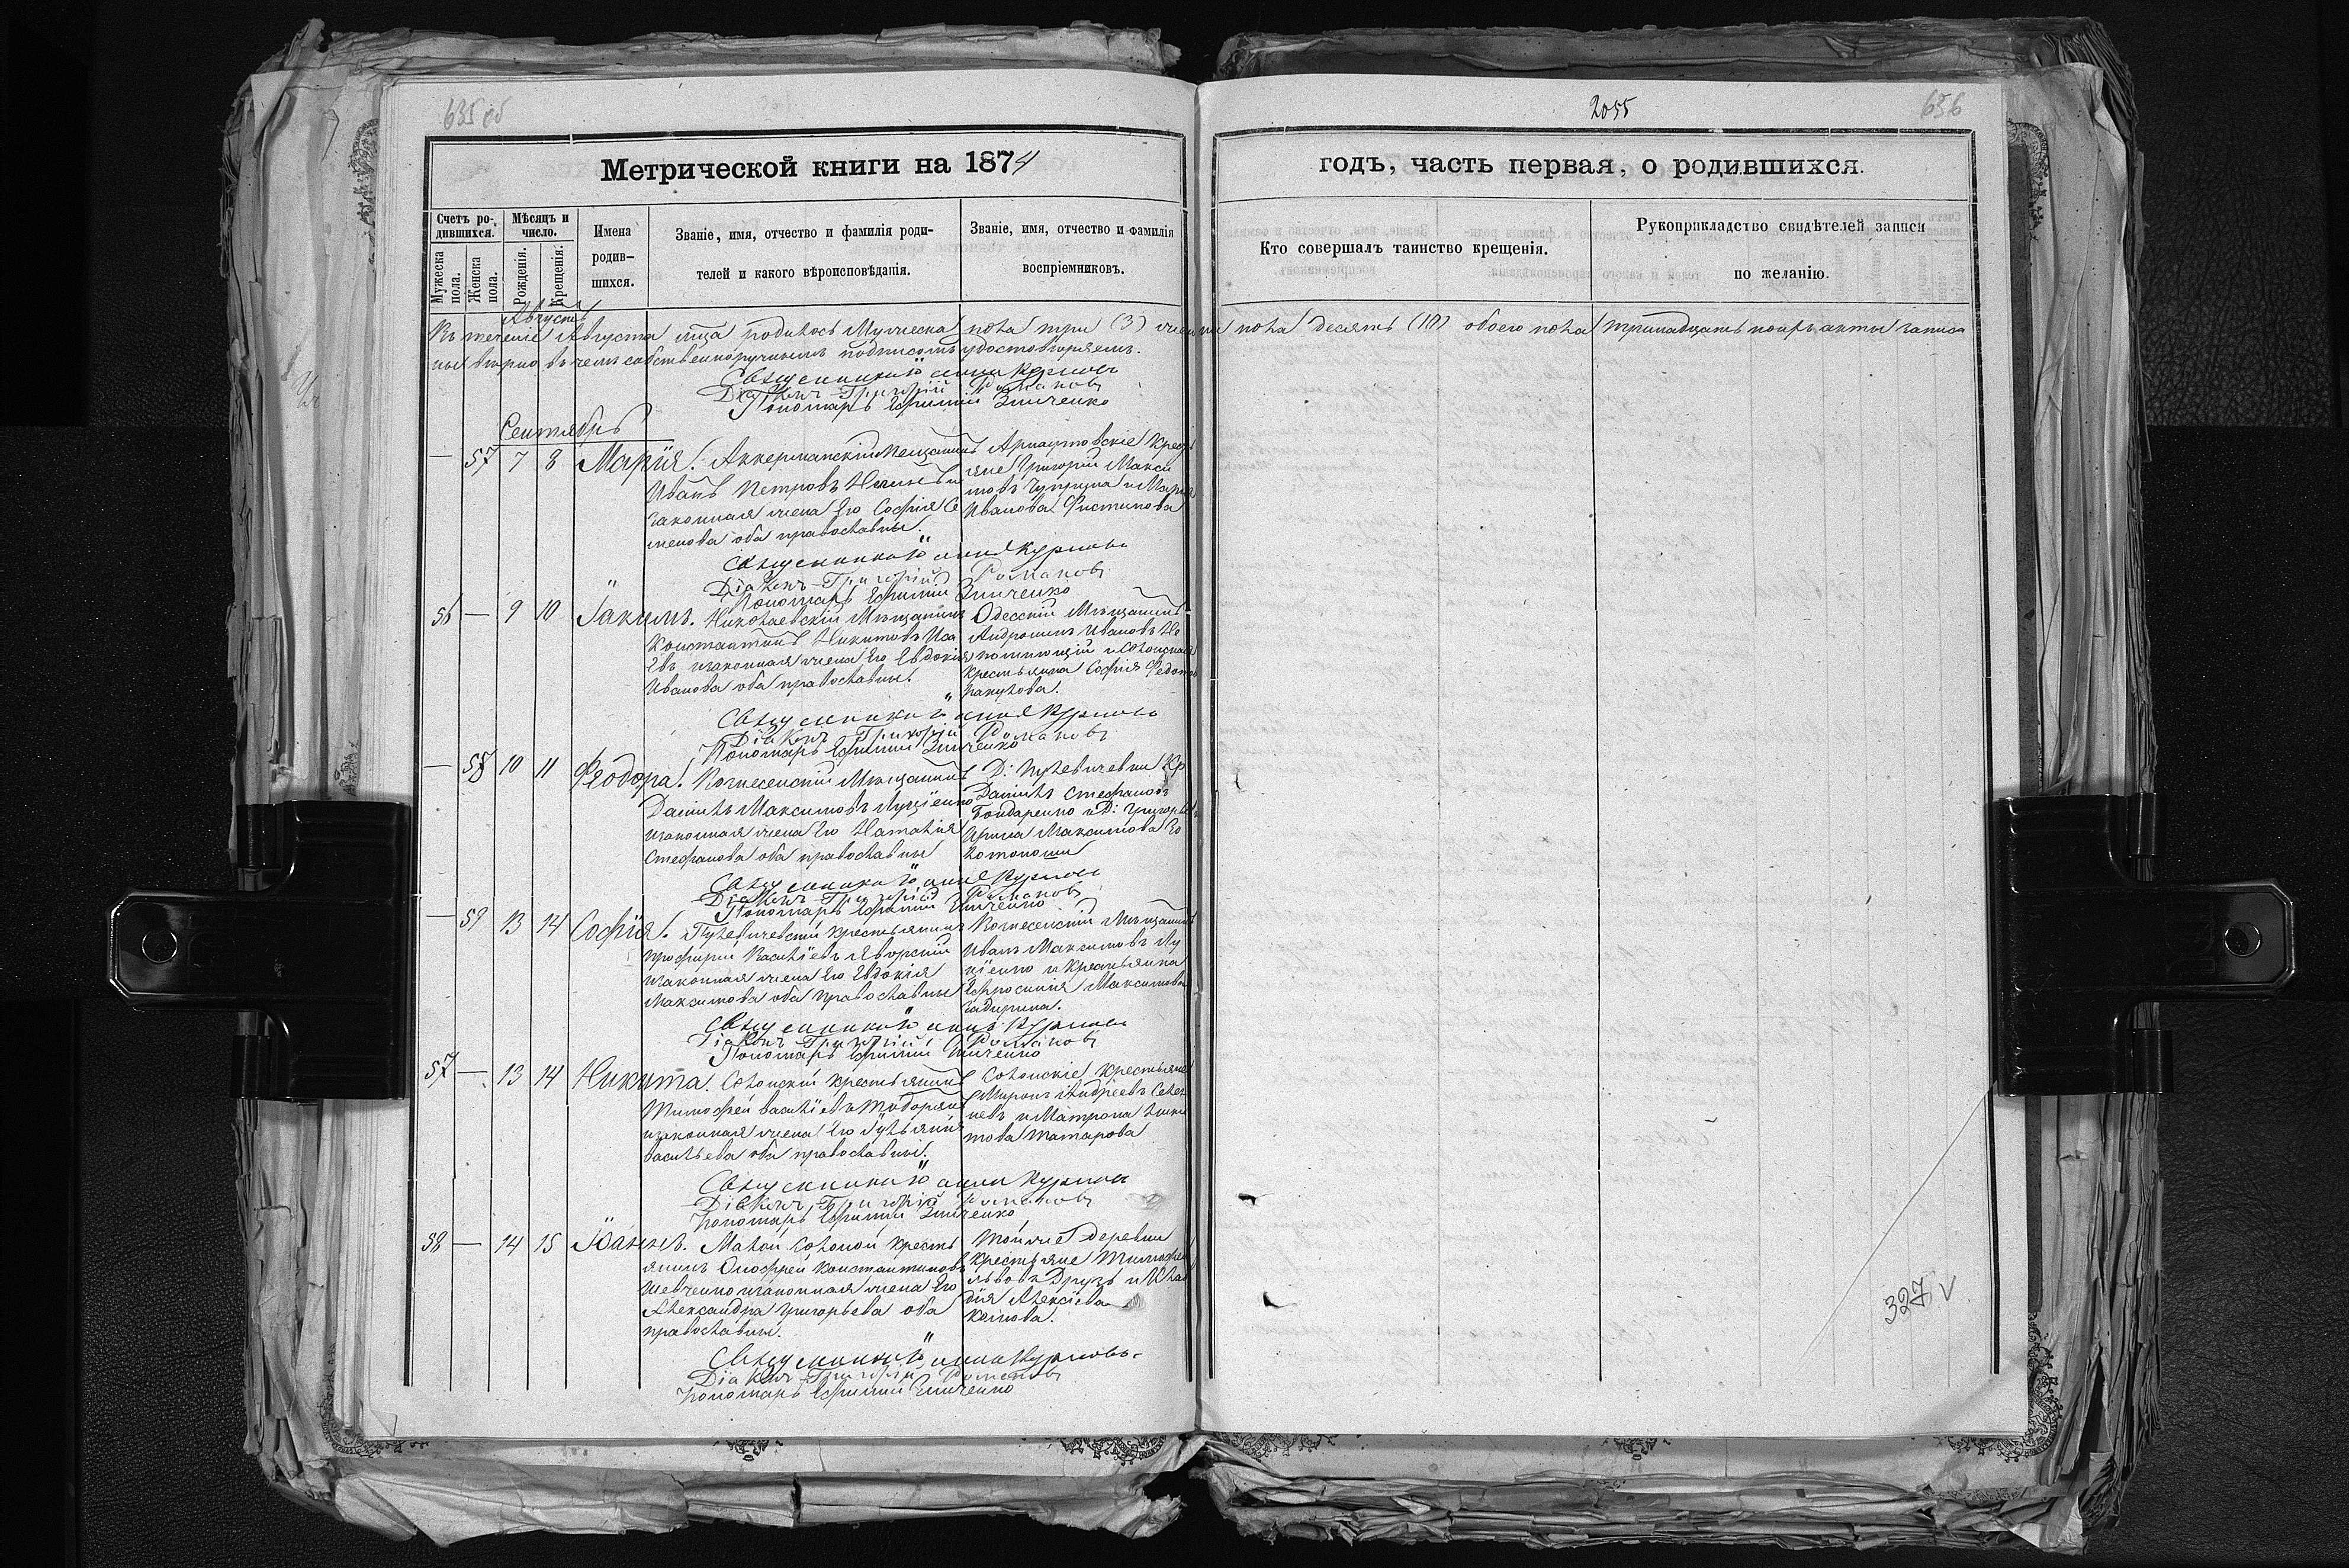 635 об
2055
656
Метрической книги на 1874
годъ, часть первая, о родившихся.
Счетъ родившихся.
Мѣсяцъ и число.
Имена родившихся.
Званіе, имя, отчество и фамилія родителей и какого вѣроисповѣданія.
Званіе, имя, отчество и фамилія воспріемниковъ.
Кто совершалъ таинство крещенія.
Рукоприкладство свидѣтелей записи по желанію.
Мужеска пола.
Женска пола.
Рожденія.
Крещенія.
Августъ
Въ теченіе Августа м͠ца родилось Мужеска пола три (3) женска пола десять (10) обоего пола тринадцать
въ чемъ собственноручнымъ подписомъ удостовѣряемъ.
Священникъ Курловъ
Діаконъ Григорій Романовъ
Пономарь Ефимій Зинченко
Сентябрь
— 57 7 8 Марія. Аккерманскій Мещанинъ
Иванъ Петровъ и
законная жена Его Софія Се
менова оба православны.
Арнаутовскіе Кресть
яне Григорій Макси
мовъ Чуприна и Марія
Иванова Фистикова
Священникъ Курловъ
Діаконъ Григорій Романовъ
Пономарь Ефимій Зинченко
56 — 9 10 Іакимъ. Николаевскій Мѣщанинъ
Константинъ Никитовъ Иса
евъ изаконная жена Его Евдокія
Иванова оба православны.
Одесскій Мѣщанинъ
Андроникъ Ивановъ
и Солонская
Крестьянка Софія Федотова
Священникъ Курловъ
Діаконъ Григорій Романовъ
Пономарь Ефимій Зинченко
— 58 10 11 Феодора. Вознесенскій Мѣщанинъ
Даніилъ Максимовъ Луценко
изаконная жена Его Наталія
Стефанова оба православны
Д: Кр
Даніилъ Стефановъ
Бондаренко и Д:
Ирина Максимова
Священникъ Курловъ
Діаконъ Григорій Романовъ
Пономарь Ефимій Зинченко
— 59 13 14 Софія. Крестьянинъ
Профирій Василіевъ Яворскій
изаконная жена Его Евдокія
Максимова оба православны
Вознесенскій Мѣщанинъ
Иванъ Максимовъ Лу
ценко и Крестьянка
Ефросинія Максимова
Священникъ Курловъ
Діаконъ Григорій Романовъ
Пономарь Ефимій Зинченко
57 — 13 14 Никита. Солонскій Крестьянинъ
Тимофей Василіевъ
изаконная жена Его Іуліянія
Васильева оба православны.
Солонскіе Крестьяне
Миронъ Андреевъ
и Матрона
Татарова
Священникъ Курловъ
Діаконъ Григорій Романовъ
Пономарь Ефимій Зинченко
58 — 14 15 Іоаннъ. Малой Солоной кресть
янинъ Онофрей Константиновъ
Шевченко изаконная жена Его
Александра Григорьева оба
православны.
Той же деревни
Крестьяне Тимофей
Львовъ Друзь и Клав
дія Алексіева
Священникъ Курловъ
Діаконъ Григорій Романовъ
Пономарь Ефимій Зинченко
327 V